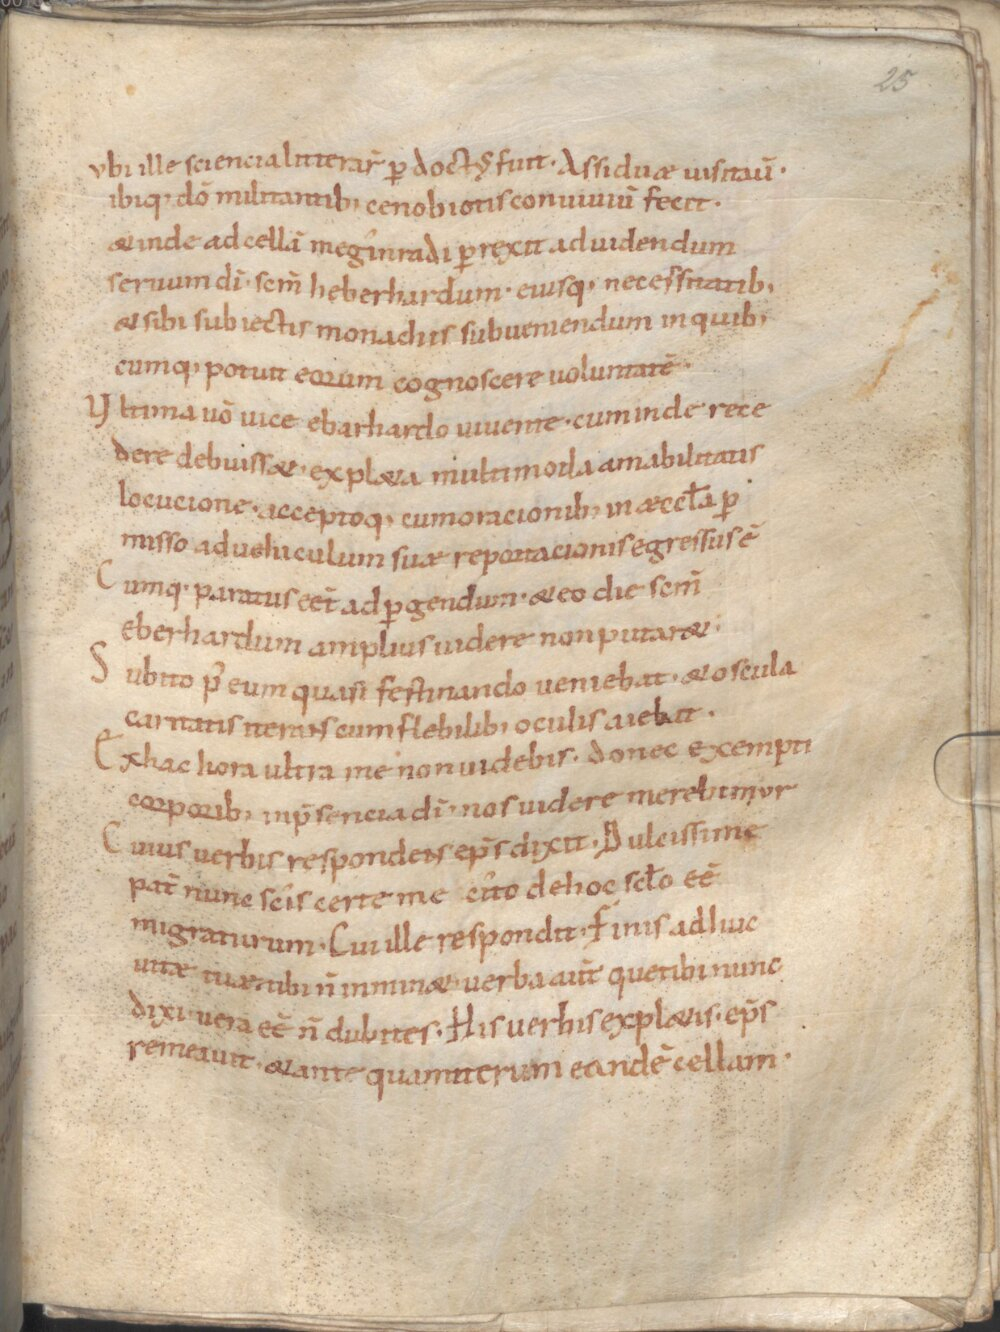 25
vbi ille sciencia litterar̄ ꝑ doctꝰ fuit · Assiduæ uisitaū ·
ibiq; dō militantib; cenobiotis conuiuiū fecit ·
& inde ad cellā meginradi ꝑrexit ad uidendum
seruum dī · scm̄ heberhardum · eiusq; necessitatib;
& sibi subiectis monachis subueniendum in quib;
cumq; potuit eorum cognoscere uoluntatē ·
Vltima uō uice ebarhardo uiuente · cum inde rece
dere debuiss& · expl&a multimoda amabilitatis
locucione · acceptoq; cum oracionib; in æccła ꝑ
misso ad uehiculum suæ reportacionis egressus ē
Cumq; paratus eēt ad ꝑgendum · & eo die scm̄
eberhardum amplius uidere non putar& ·
Subito p̄ eum quasi festinando ueniebat · & oscula
caritatis iterans cum flebilib; oculis aiebat ·
Ex hac hora ultra me non uidebis · donec exempti
corporib; in p̄sencia dī · nos uidere merebimur
Cuius uerbis respondens ep̄s dixit · Dulcissime
pat̄ nunc scis certe me cito de hoc scło eē
migraturum · Cui ille respondit · Finis adhuc
uitæ tuæ tibi n̄ inmin& uerba aut̄ que tibi nunc
dixi · uera eē n̄ dubites · His uerbis expl&is · ep̄s
remeauit · & ante quam iterum eandē cellam ·